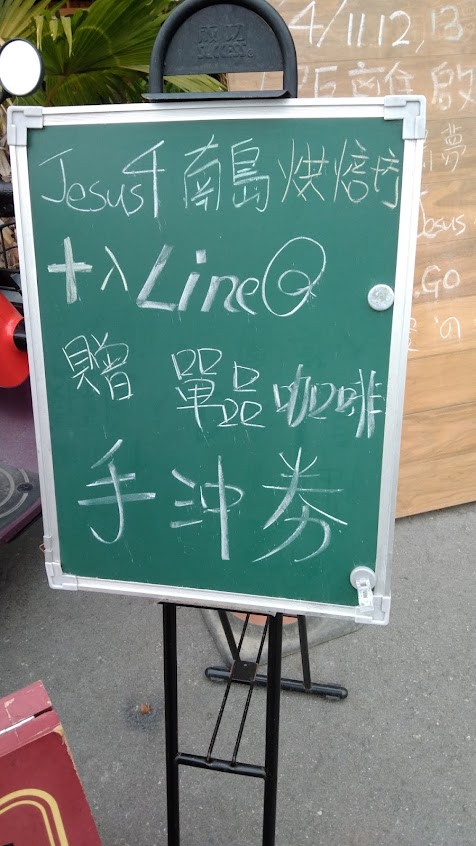 SUCCESS
Jesus千南島烘焙坊
十入Line@
贈 單品咖啡
手沖券
4/11.12,13
距離啟
夢
Jesus
.Go
の